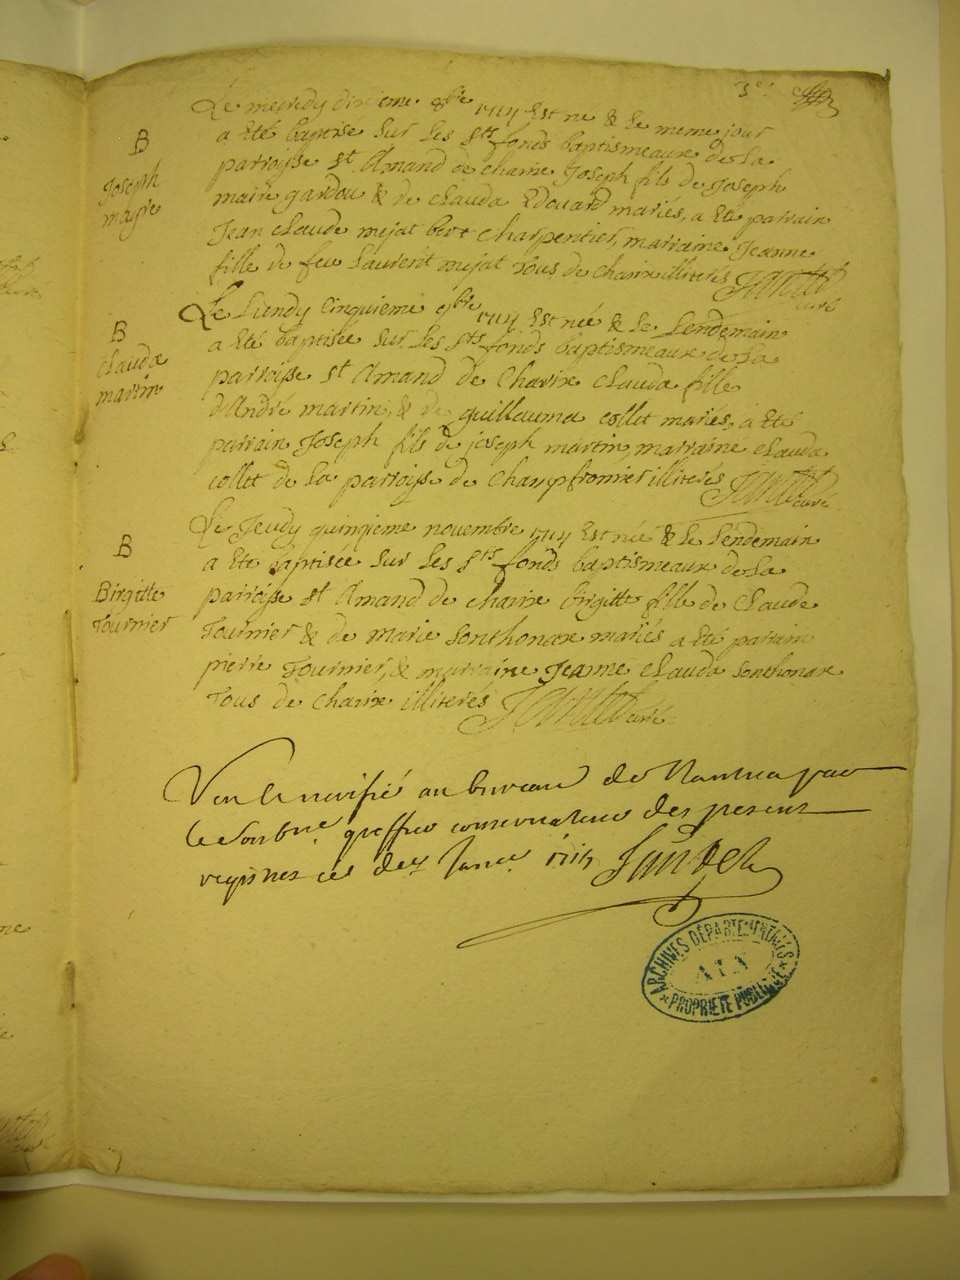 3e
B
Joseph
maire
Le mecredy dixieme 8bre 1714 Est né & le meme jour
a Eté baptisé sur les Sts fonds baptismeaux de la
parroisse St Amand de charix Joseph fils de Joseph
maire gardou & de clauda Edouard mariés, a été parrain
Jean claude mijat charpentier, marraine Jeanne
fille de feu Laurent mijat tous de charix illiterés
curé
B
clauda
martin
Le Lundy cinquieme 9bre 1714 Est née & le Lendemain
a Eté baptisée sur les Sts fonds baptismeaux de la
parroisse St Amand de charix clauda fille
d'André martin, & de guillauma collet mariés, a Eté
parrain Joseph fils de joseph martin, marraine clauda
collet de la parroisse de champfromier illiterés
curé
B
Birgitte
Tournier
Le Jeudy quinzieme novembre 1714 Est née & le lendemain
a Eté baptisée sur les Sts fonds baptismeaux de la
parroisse St Amand de charix birgitte fille de claude
Tournier & de marie sonthonax mariés a Eté parrain
pierre Tournier, & marraine Jeanne clauda sonthonax
Tous de charix illiterés
curé
Veu & verifié au bureau de Nantua par
le greffier conservateur des presents
registres ce
ARCHIVES DÉPARTEMENTALES
AIN
PROPRIÉTÉ PUBLIQUE